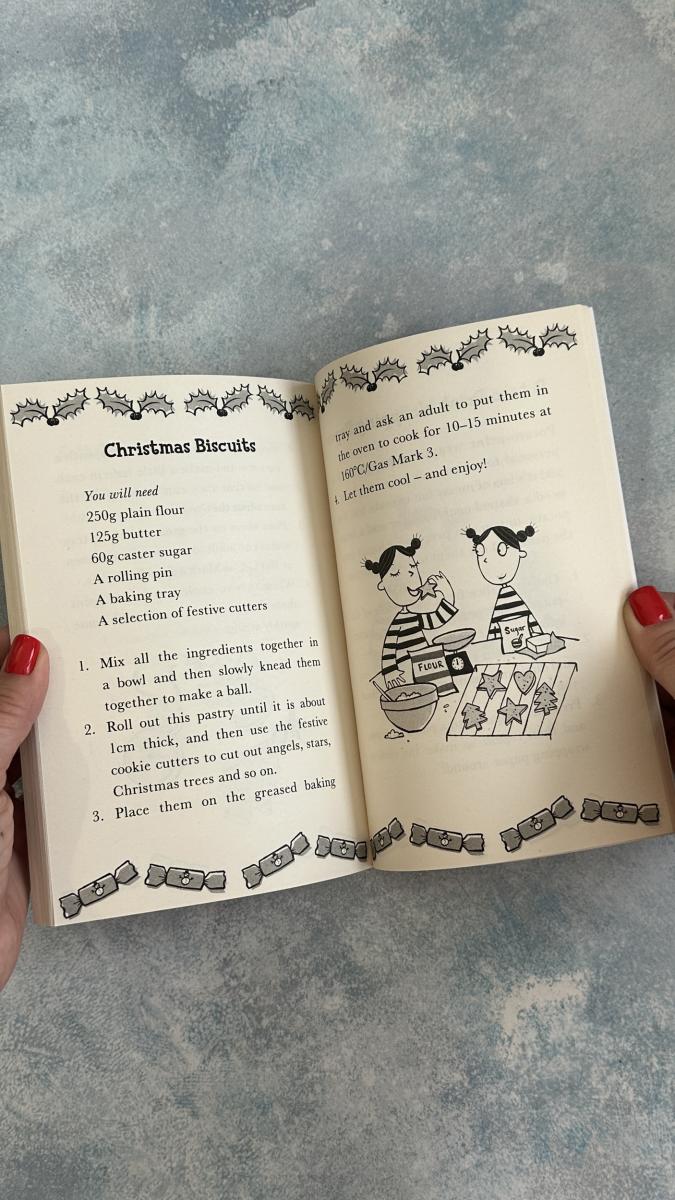 Christmas Biscuits
You will need
250g plain flour
125g butter
60g caster sugar
A rolling pin
A baking tray
A selection of festive cutters
1. Mix all the ingredients together in
a bowl and then slowly knead them
together to make a ball.
2. Roll out this pastry until it is about
1cm thick, and then use the festive
cookie cutters to cut out angels, stars,
Christmas trees and so on.
3. Place them on the greased baking
tray and ask an adult to put them in
the oven to cook for 10–15 minutes at
160°C/Gas Mark 3.
4. Let them cool – and enjoy!
Sugar
FLOUR